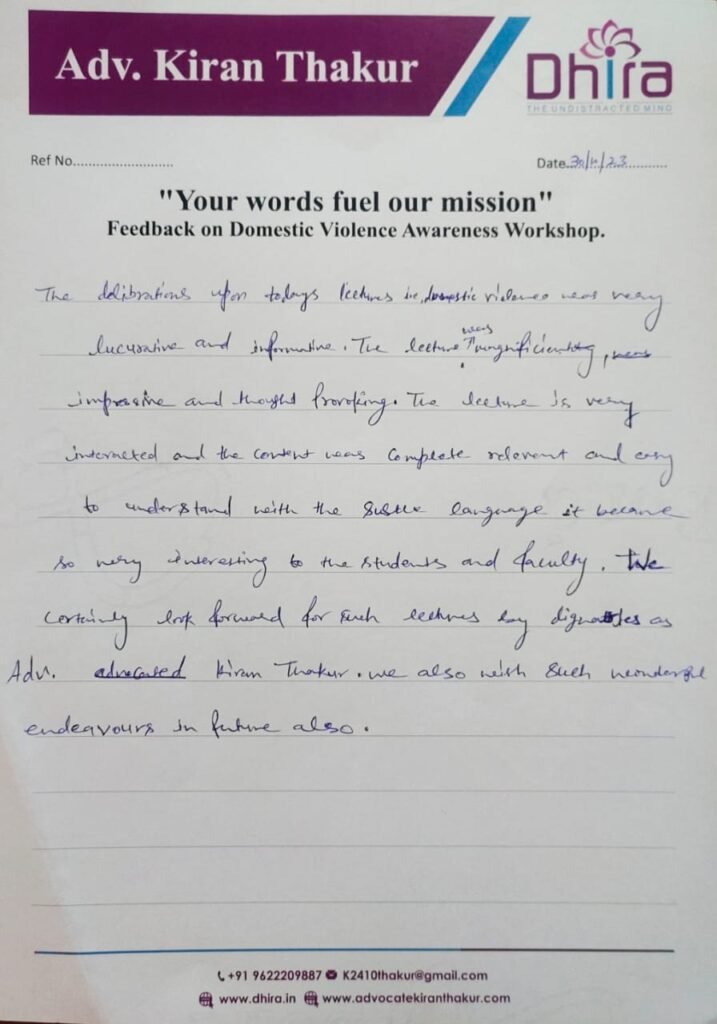 Adv. Kiran Thakur
Dhira
THE UNDISTRACTED MIND
Ref No..........................
Date..30/11/23............
"Your words fuel our mission"
Feedback on Domestic Violence Awareness Workshop.
The delibrations upon todays lectures ie, domestic violence was very
lucurative and informative. The lecture was magnificient,
impressive and thought Provoking. The lecture is very
interacted and the content was complete relevent and easy
to understand with the language it became
so very interesting to the students and faculty. We
certainly look forward for such lectures by as
Adv. Kiran Thakur. we also wish such wonderful
endeavours in future also.
+91 9622209887 K2410thakur@gmail.com
www.dhira.in www.advocatekiranthakur.com